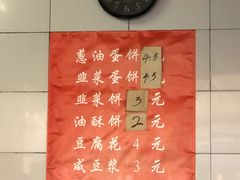 7 6 5
葱油蛋饼 4.5 元
韭菜蛋饼 4.5 元
韭菜饼 3 元
油酥饼 2 元
豆腐花 4 元
咸豆浆 3 元